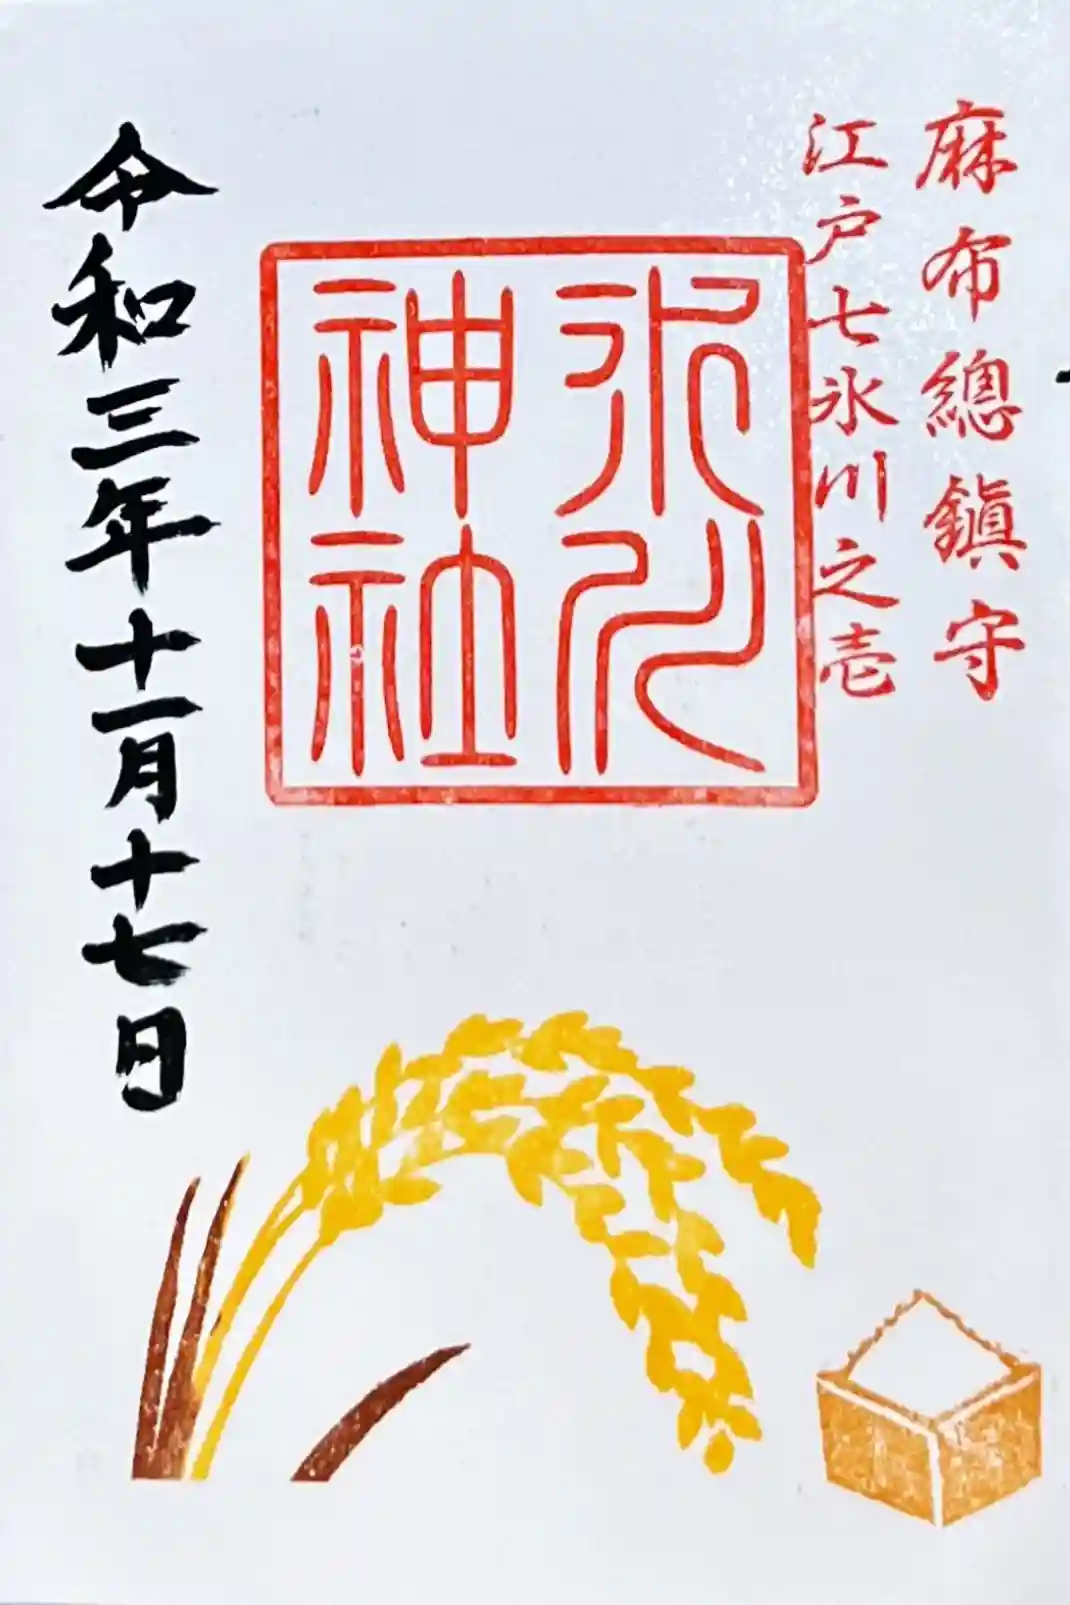 麻布總鎭守
江戸七氷川之壱
氷川
神社
令和三年十一月十七日